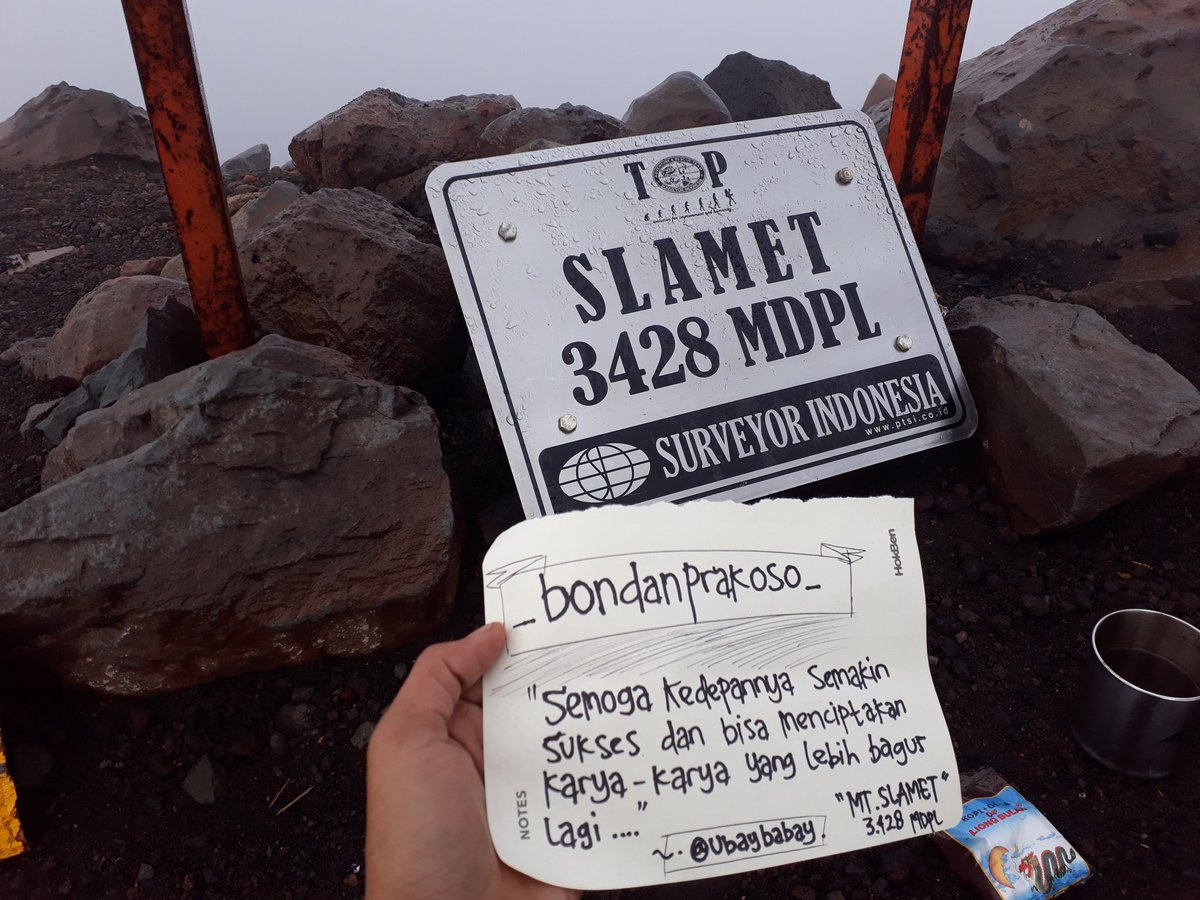 TOP
SLAMET
3428 MDPL
SURVEYOR INDONESIA
www.ptsi.co.id
HokBen
_bondanprakoso_
"Semoga Kedepannya Semakin
sukses dan bisa menciptakan
karya-karya yang lebih bagus
Lagi ...."
"MT. SLAMET"
3.428 MDPL
NOTES
~. @Ubaybabay
KOPI+GULA
LIONG BULAN